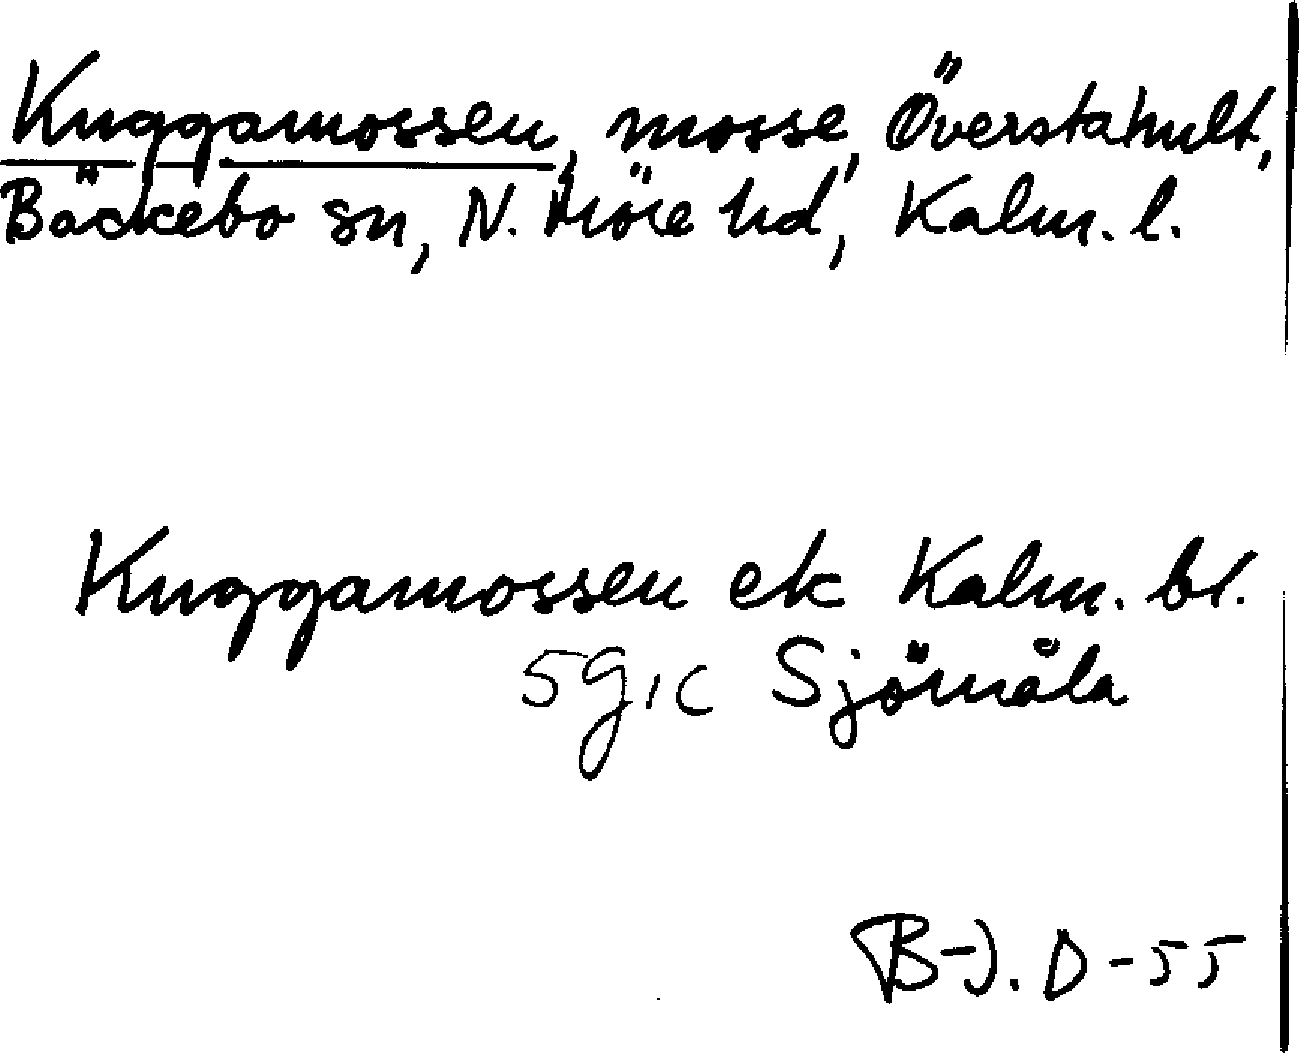 Kuggamossen, mosse, Överstahult,
Bäckebo sn, N. Möre hd, Kalm. l.
Kuggamossen ek Kalm. bl.
5g1c Sjömåla
B-J. D-55